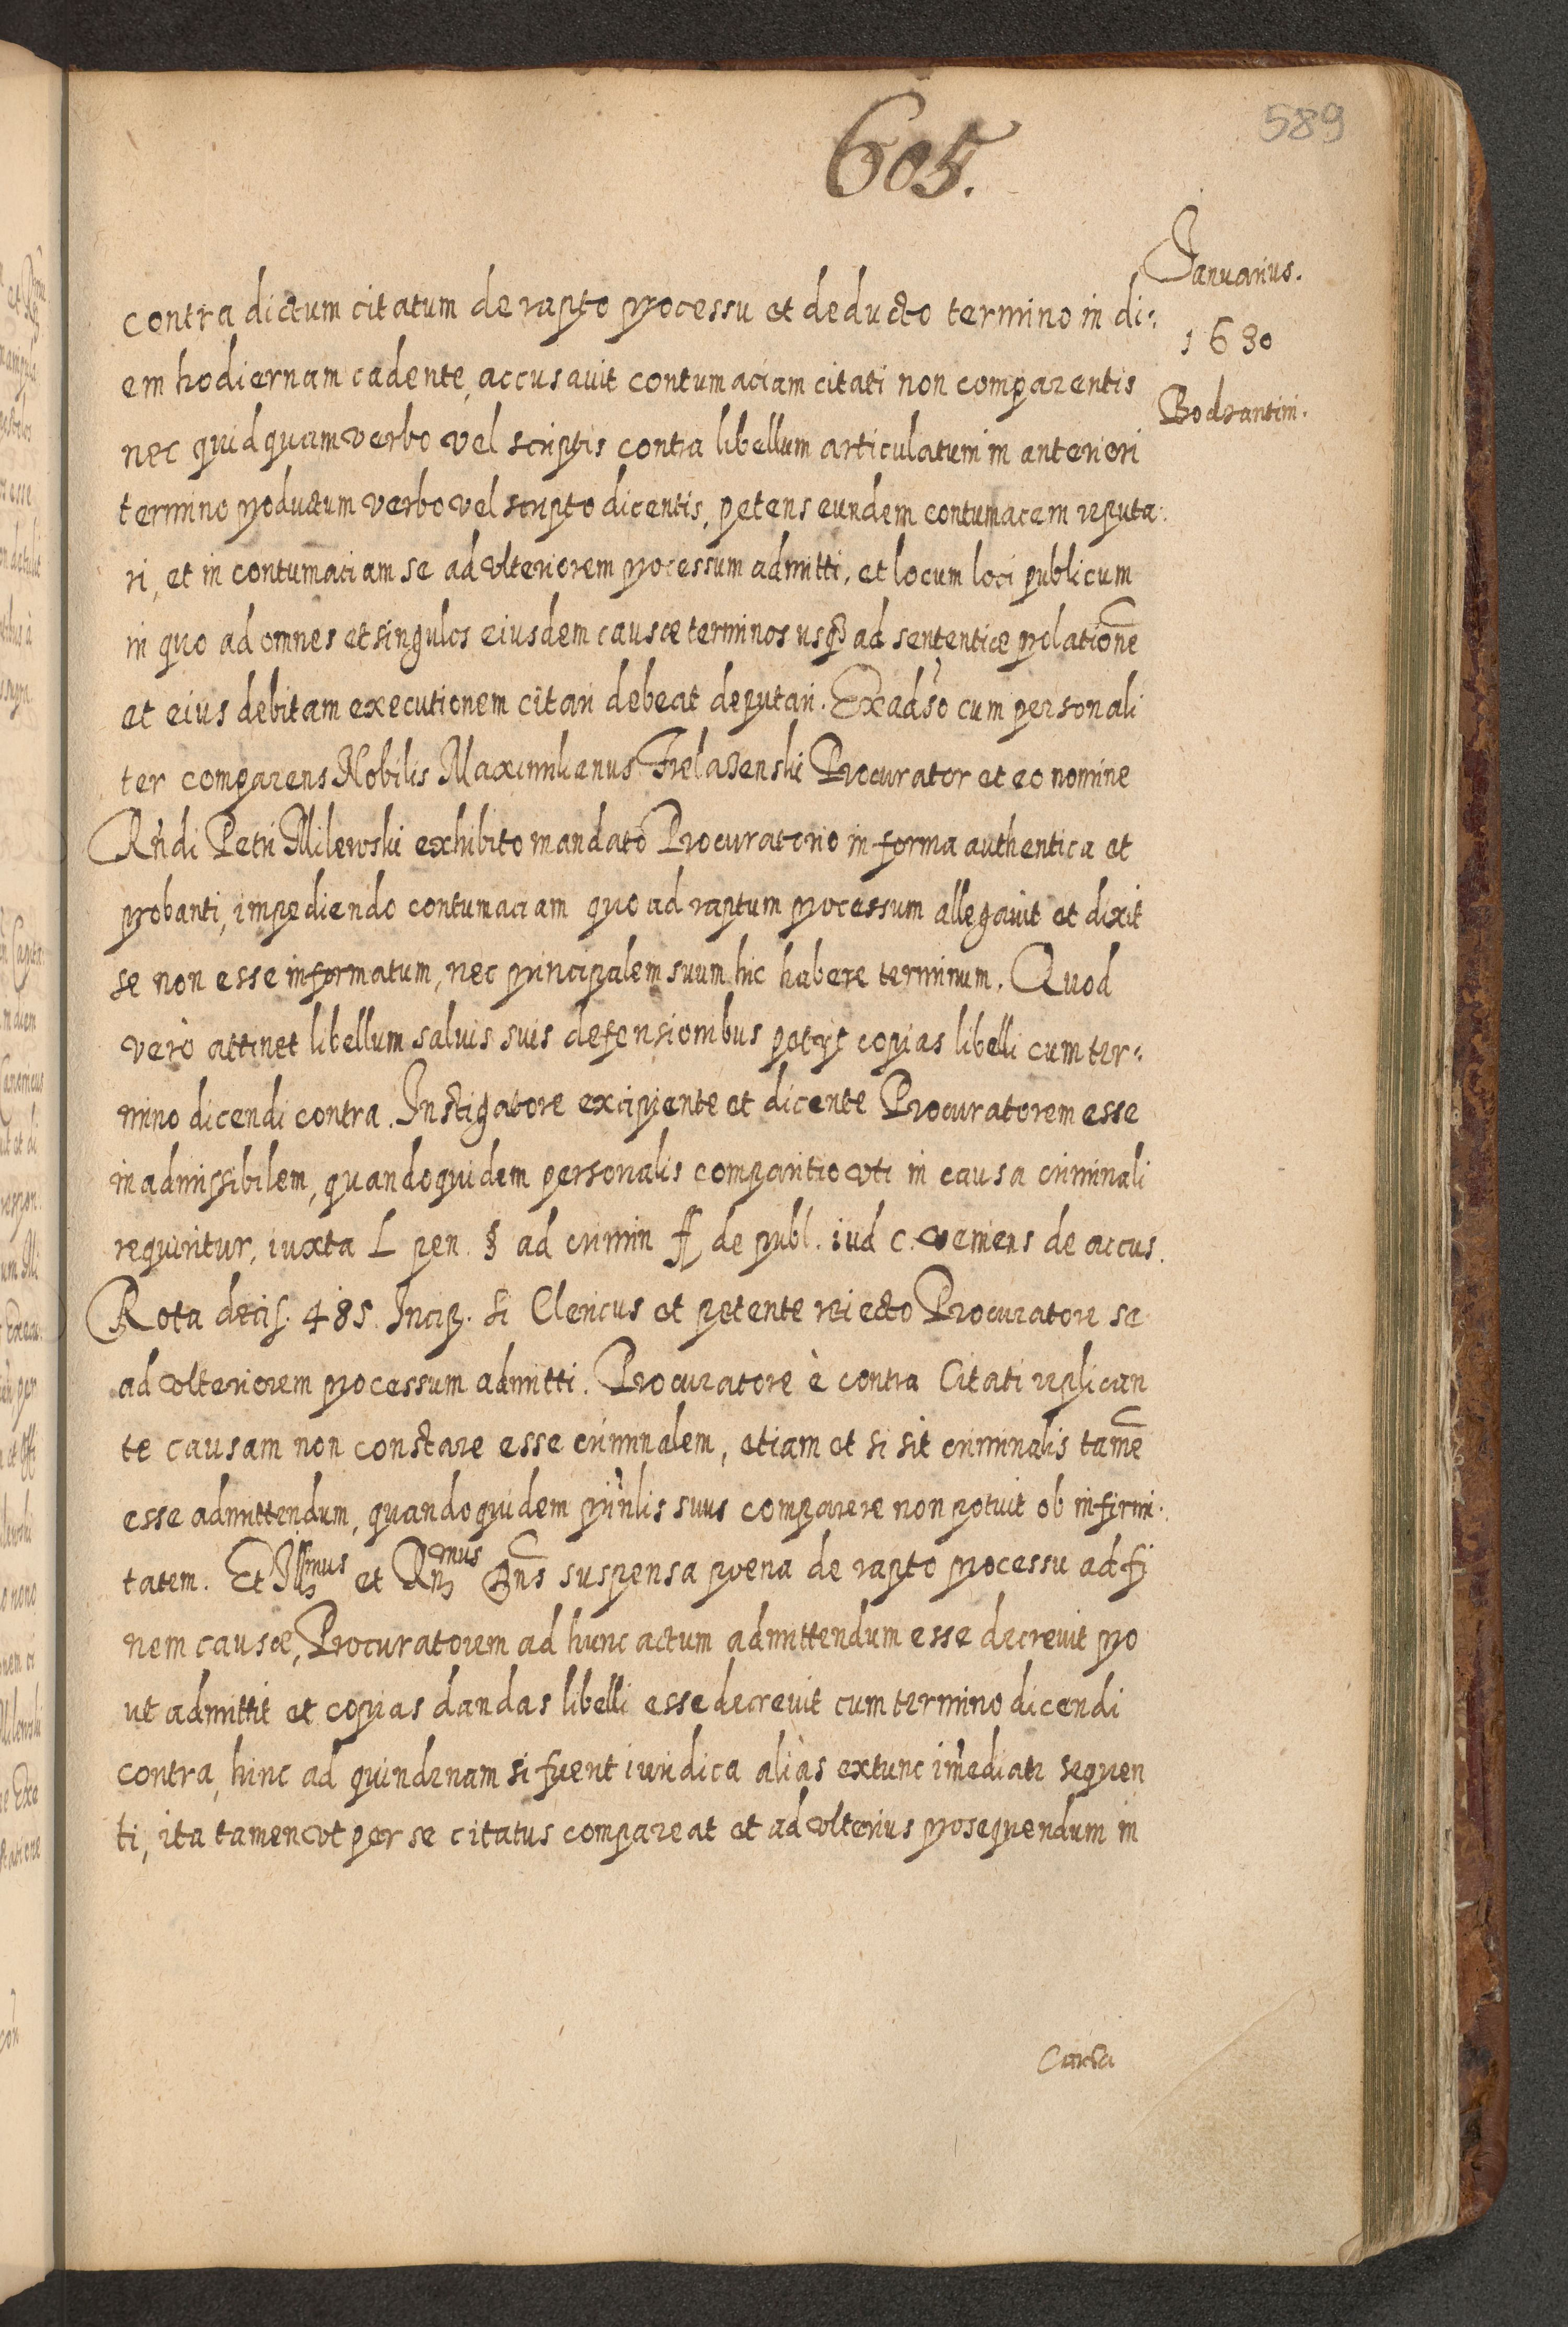 605.
589
Januarius.
1630
Bodzantini.
contra dictum citatum de rapto processu et deducto termino in di:
em hodiernam cadente, accusauit contumaciam citati non comparentis
nec quidquam verbo vel scriptis contra libellum articulatum in anteriori
termino productum verbo vel scripto dicentis, petens eundem contumacem reputa:
ri, et in contumaciam se ad vlteriorem processum admitti, et locum loci publicum
in quo ad omnes et singulos eiusdem causæ terminos usq3 ad sententiæ prolationē
et eius debitam executionem citari debeat deputari. Exadſo cum personali
ter comparens Nobilis Maximilianus Frelazenski Procurator et eo nomine
Rńdi Petri Milewski exhibito mandato Procuratorio in forma authentica et
probanti, impediendo contumaciam quo ad raptum processum allegauit et dixit
se non esse informatum, nec principalem suum hic habere terminum. Quod
verò attinet libellum saluis suis defensionibus petijt copias libelli cum ter:
mino dicendi contra. Instigatore excipiente et dicente Procuratorem esse
inadmissibilem, quandoquidem personalis comparitio vti in causa criminali
requiritur, iuxta L pen. § ad crimin ff de publ. iud c. veniens de accus.
Rota decis. 485 Incip. Si Clericus et petente reiecto Procuratore se
ad vlteriorem processum admitti. Procuratore è contra Citati replican
te causam non constare esse criminalem, etiam et si sit criminalis tamē
esse admittendum, quandoquidem prinłlis suus comparere non potuit ob infirmi:
tatem. Et Illmus et Rńmus Dn̄s suspensa poena de rapto processu ad fi
nem causæ, Procuratorem ad hunc actum admittendum esse decreuit pro
ut admittit et copias dandas libelli esse decreuit cum termino dicendi
contra, hinc ad quindenam si fuerit iuridica aliàs extunc imediate sequen
ti, ita tamen vt per se citatus compareat et ad vlterius prosequendum in
Causa